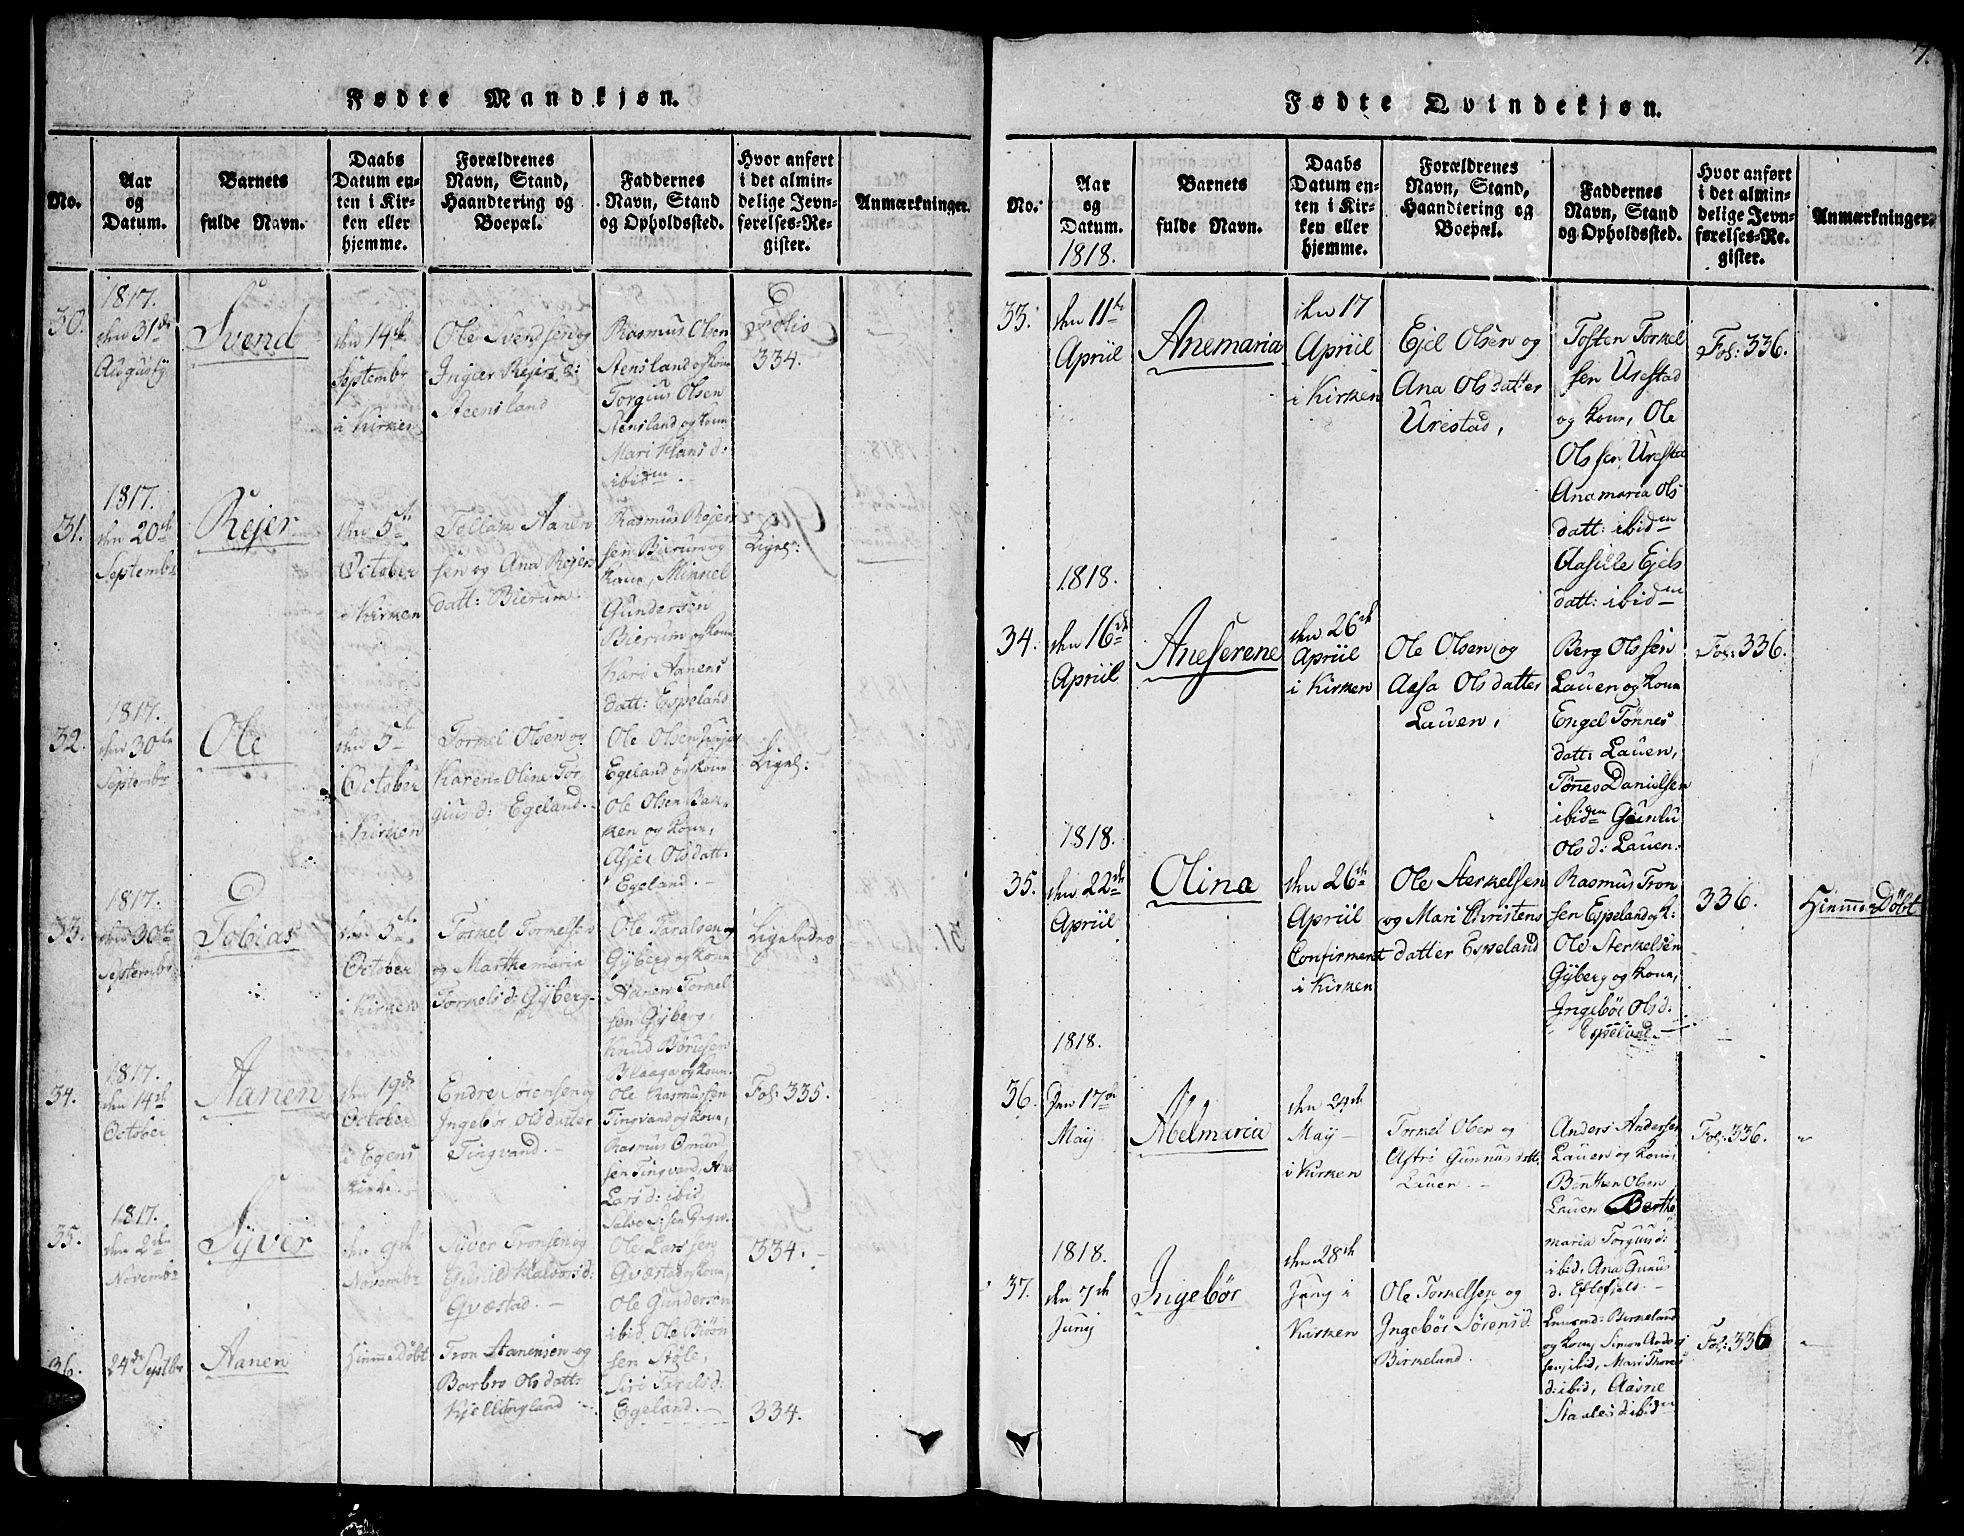 7.
Fødte Mandkjøn.
No.
Aar
og
Datum.
Barnets
fulde Navn.
Daabs
Datum en-
ten i Kir-
ken eller
hjemme.
Forældrenes
Navn, Stand,
Haandtering og
Boepæl.
Faddernes
Navn, Stand
og Opholdssted.
Hvor anført
i det almin-
delige Jevn-
førelses-Re-
gister.
Anmærkninger.
30.
1817.
den 31de
Augustij
Svend
den 14de
Septembr
i Kirken
Ole Svendsen og
Ingier Rejers d:
Steensland
Rasmus Olsen
Stensland og Kone
Torgius Olsen
Stensland og Kone
Mari Hans d:
ibidem.
Folio
334.
31.
1817.
den 20de
Septembr
Rejer
den 5te
October
i Kirken
Tellak Aanen
sen og Ana Rejers
datt: Bierum
Rasmus Rejer
sen Bierum og
Kone, Mikkel
Gundersen
Bierum og Kone
Kari Aanens
datt: Espeland
Ligel:
32.
1817.
den 30te
Septembr
Ole
den 5te
October
i Kirken
Torkel Olsen og
Karen Oline Tor
gius d: Egeland.
Ole Olsen
Egeland og Kone
Ole Olsen Bak-
ken og Kone,
Olsdatt.
Egeland.
Ligel:
33.
1817.
den 30te
Septembr
Tobias
den 5te
October
i Kirken
Torkel Torkelsen
og Marthe maria
Torkels d: Gÿberg
Ole Taralsen og
Gÿberg og Kone
Aanen Torkel
sen Gÿberg,
Knud Børresen
Blaaga og Kone.
Ligeledes
34.
1817.
den 14de
October
Aanen
den 19de
October
i Egens
Kirke.
Endre Sørensen og
Ingebør Olsdatter
Tingvand.
Ole Rasmussen
Tingvand og Kone,
Rasmus Omun
sen Tingvand, Ana
Lars d: ibid,
Fol: 335.
35.
1817.
den 2den
Novembr
Sÿver
den 9de
Novembr
Sÿver Tronsen og
Gunild Halvors d:
Gvæstad.
Ole Larssen
Gvæstad og Kone,
Ole Gundersen
ibid, Ole Biørn
sen Støle,
Siri Tarels d:
Egeland.
334.
36.
24de Septbr
Aanen
Hiemme Døbt
Tron Aanensen og
Barbro Olsdatt:
Kiellingland
334.
Fødte Qvindekjøn.
No.
Aar
og
Datum.
1818.
Barnets
fulde Navn.
Daabs
Datum en-
ten i Kir-
ken eller
hjemme.
Forældrenes
Navn, Stand,
Haandtering og
Boepæl.
Faddernes
Navn, Stand
og Opholdssted.
Hvor anført
i det almin-
delige Jevn-
førelses-Re-
gister.
Anmærkninger.
33.
den 11te
Apriil
Anemaria
den 17
Apriil
i Kirken
Ejel Olsen og
Ana Olsdatter
Urestad,
Tosten Torkel
sen Urestad
og Kone, Ole
Olssen Urestad
Anamaria Ols
datt: ibidem
Aasille Ejels
datt: ibidem
Fol: 336.
1818.
34.
den 16de
Apriil
Aneserene
den 26de
Apriil
i Kirken
Ole Olsen og
Aasa Olsdatter
Lauen,
Berg Olssen
Lauen og Kone
Engel Tønnes
datt: Lauen,
Tønnes Danielsen
ibidem Gunlu
Ols d: Lauen.
Fol: 336.
1818.
35.
den 22de
Apriil
Olina
den 26de
Apriil
Confirmeret
i Kirken
Ole Sterkelsen
og Mari Christens
datter Espeland
Rasmus Tron
sen Espeland og K:
Ole Sterkelsen
Gÿberg og Kone,
Ingebør Ols d:
Espeland.
336.
Hiemme Døbt
1818.
36.
Den 17de
Maÿ
Abelmaria
den 24de
Maÿ
i Kirken
Torkel Olsen og
Astri Gunnus datt:
Lauen.
Anders Andersen
Lauen og Kone,
Bernt Olsen
Lauen Berthe
maria Torgius d:
ibid, Ana Gunus
d: Eftefield.
Fol: 336.
1818.
37.
den 7de
Junij
Ingebør
den 28de
Junij i
Kirken
Ole Torkelsen og
Ingebør Sørens d:
Birkeland.
Birkeland
og Kone, Simon Anders
sen ibid, Mari Thores
d: ibid, Aasne
Staales d: ibidem
Fol: 336